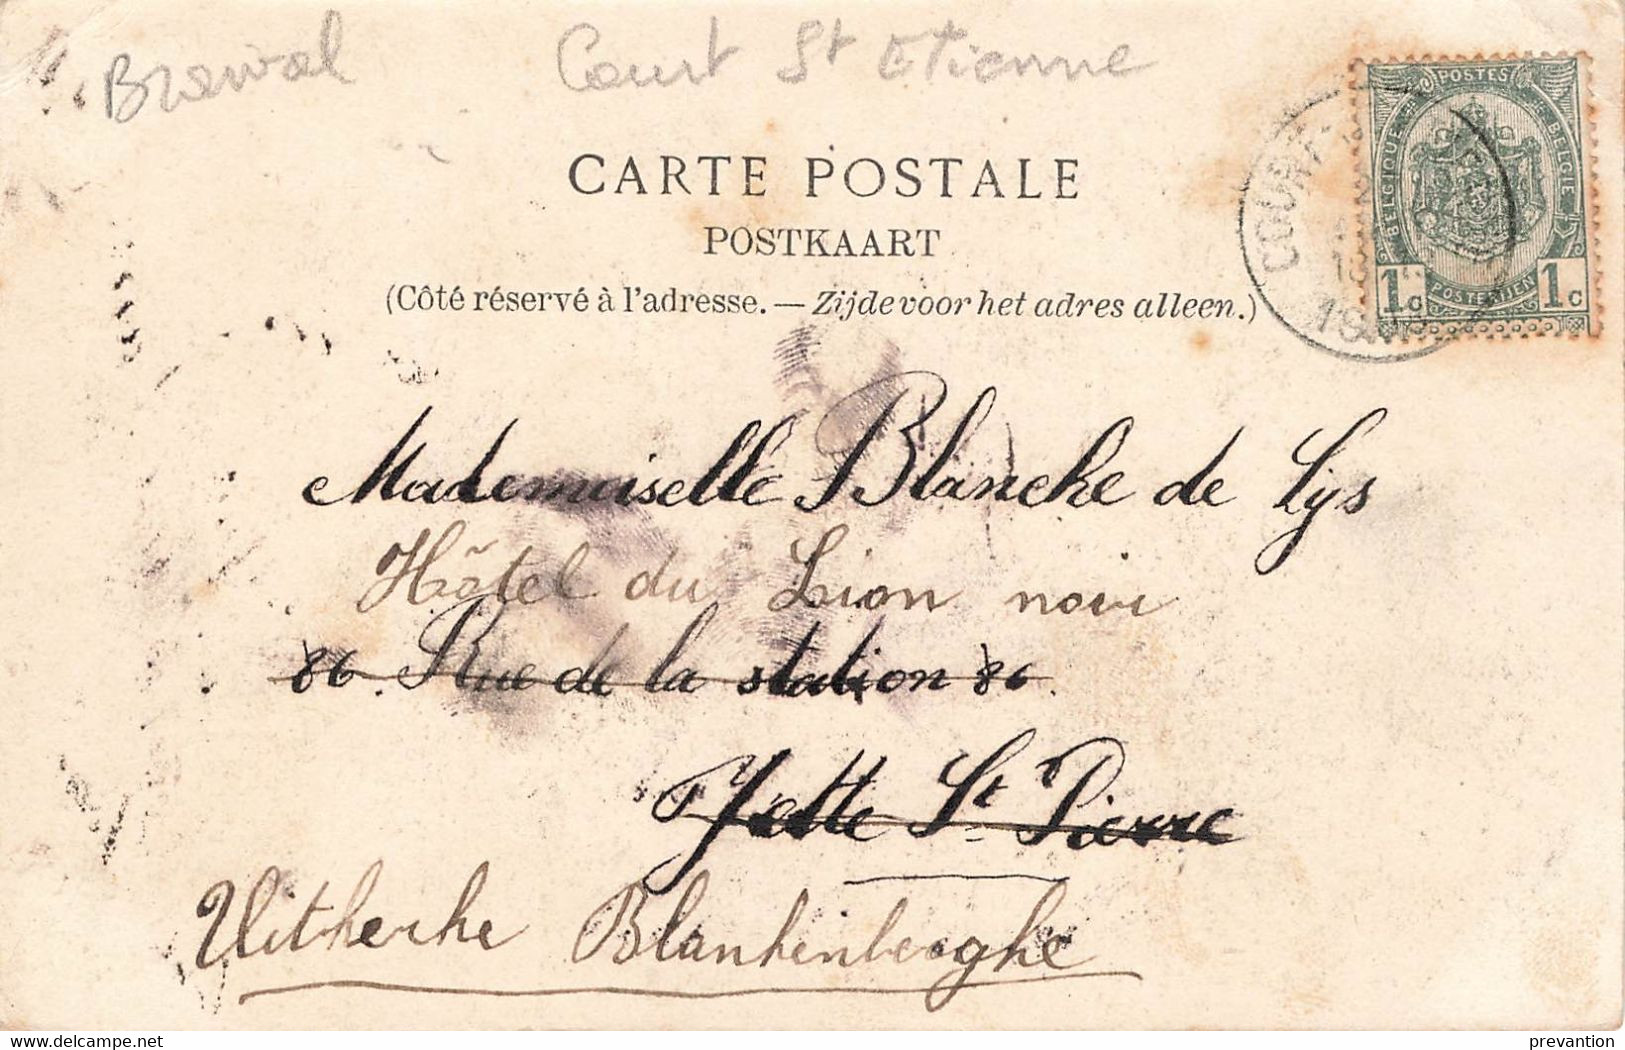 Court St Etienne
POSTES
BELGIQUE BELGIE
1c 1c
POSTERIJEN
COURT
CARTE POSTALE
POSTKAART
(Côté réservé à l'adresse. — Zijde voor het adres alleen.)
Mademoiselle Blanche de Lys
Hôtel du Lion noir
86. Rue de la station 86
Jette St Pierre
Uitkerke Blankenberghe
delcampe.net
prevantion